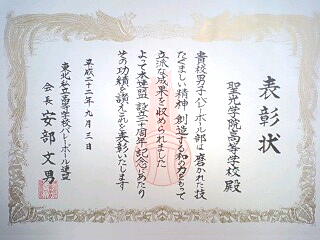 表彰状
聖光学院高等学校殿
貴校男子バレーボール部は磨かれた技
たくましい精神 創造する和の力をもって
立派な成果を収められました
よって本連盟設立三十周年記念にあたり
その功績を讃えこれを表彰いたします
平成二十二年九月三日
東北私立高等学校バレーボール連盟
会長 安部文男